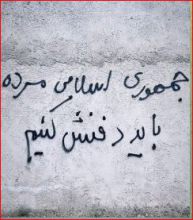 جمهوری اسلامی مرده
باید دفنش کنیم